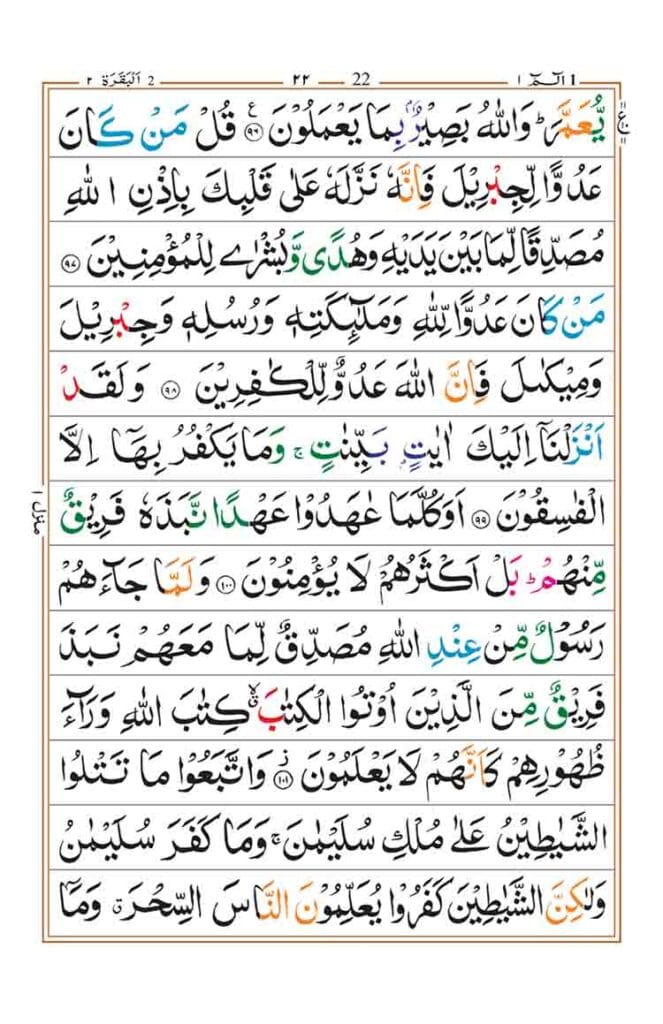 الٓمّٓ ١ 1 ٢٢ 22 اَلْبَقَرَة ٢ 2
يُّعَمَّرَؕ وَاللّٰهُ بَصِيْرٌۢ بِمَا يَعْمَلُوْنَ ۝٩٦ قُلْ مَنْ كَانَ ع
عَدُوًّا لِّجِبْرِيْلَ فَاِنَّهٗ نَزَّلَهٗ عَلٰى قَلْبِكَ بِاِذْنِ اللّٰهِ
مُصَدِّقًا لِّمَا بَيْنَ يَدَيْهِ وَهُدًى وَّبُشْرٰى لِلْمُؤْمِنِيْنَ ۝٩٧
مَنْ كَانَ عَدُوًّا لِّلّٰهِ وَمَلٰٓئِكَتِهٖ وَرُسُلِهٖ وَجِبْرِيْلَ
وَمِيْكٰىلَ فَاِنَّ اللّٰهَ عَدُوٌّ لِّلْكٰفِرِيْنَ ۝٩٨ وَلَقَدْ
اَنْزَلْنَاۤ اِلَيْكَ اٰيٰتٍۢ بَيِّنٰتٍۚ وَمَا يَكْفُرُ بِهَاۤ اِلَّا
الْفٰسِقُوْنَ ۝٩٩ اَوَكُلَّمَا عٰهَدُوْا عَهْدًا نَّبَذَهٗ فَرِيْقٌ
منزل ١
مِّنْهُمْؕ بَلْ اَكْثَرُهُمْ لَا يُؤْمِنُوْنَ ۝١٠٠ وَلَمَّا جَآءَهُمْ
رَسُوْلٌ مِّنْ عِنْدِ اللّٰهِ مُصَدِّقٌ لِّمَا مَعَهُمْ نَبَذَ
فَرِيْقٌ مِّنَ الَّذِيْنَ اُوْتُوا الْكِتٰبَۙ كِتٰبَ اللّٰهِ وَرَآءَ
ظُهُوْرِهِمْ كَاَنَّهُمْ لَا يَعْلَمُوْنَ ۝١٠١ وَاتَّبَعُوْا مَا تَتْلُوا
الشَّيٰطِيْنُ عَلٰى مُلْكِ سُلَيْمٰنَۚ وَمَا كَفَرَ سُلَيْمٰنُ
وَلٰكِنَّ الشَّيٰطِيْنَ كَفَرُوْا يُعَلِّمُوْنَ النَّاسَ السِّحْرَۗ وَمَاۤ